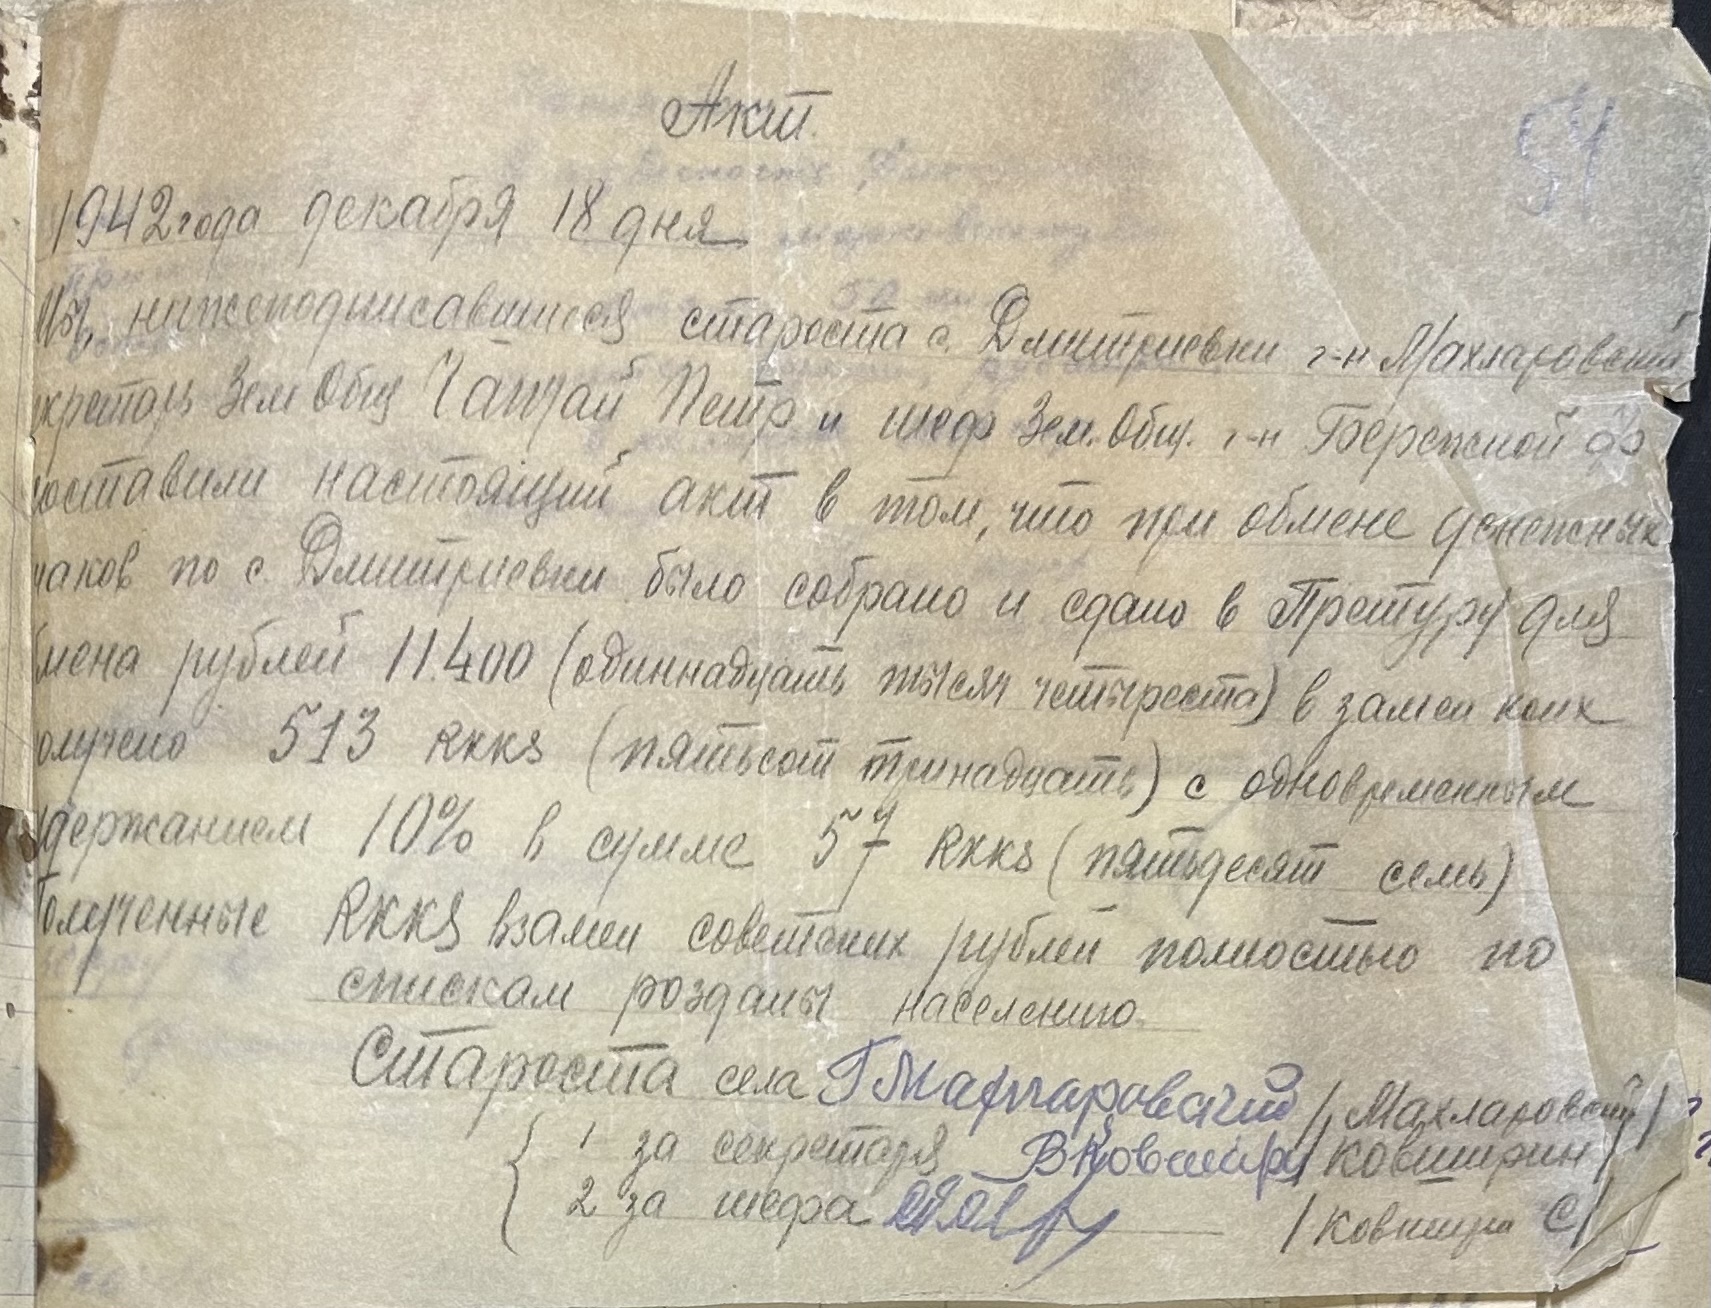 54
Акт.
1942 года декабря 18 дня
Мы, нижеподписавшиеся староста с. Дмитриевки г-н Махларовский
екретарь Зем Общ Чапчай Петр и шеф Зем. Общ. г-н Бережной
составили настоящий акт в том, что при обмене денежных
наков по с. Дмитриевки было собрано и сдано в Претуру для
бмена рублей 11.400 (одиннадцать тысяч четыреста) в замен коих
олучено 513 RKKS (пятьсот тринадцать) с одновременным
удержанием 10% в сумме 57 RKKS (пятьдесят семь)
Полученные RKKS взамен советских рублей полностью по
спискам розданы населению.
Староста села /Махларовский/
1 за секретаря /Ковширин/
2 за шефа /С/